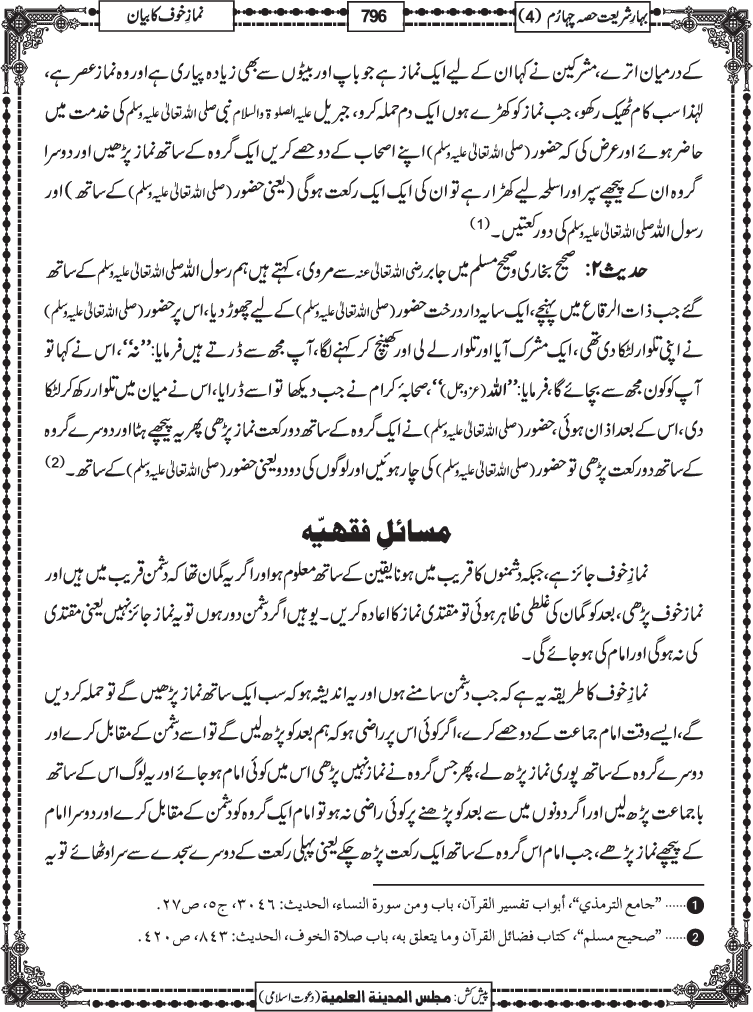 بہار شریعت حصہ چہارم (4)
796
نماز خوف کا بیان
کے درمیان اترے، مشرکین نے کہا ان کے لیے ایک نماز ہے جو باپ اور بیٹوں سے بھی زیادہ پیاری ہے اور وہ نماز عصر ہے،
لہٰذا سب کام ٹھیک رکھو، جب نماز کو کھڑے ہوں ایک دم حملہ کرو، جبریل علیہ الصلوۃ والسلام نبی صلی اللہ تعالیٰ علیہ وسلم کی خدمت میں
حاضر ہوئے اور عرض کی کہ حضور (صلی اللہ تعالیٰ علیہ وسلم) اپنے اصحاب کے دو حصے کریں ایک گروہ کے ساتھ نماز پڑھیں اور دوسرا
گروہ ان کے پیچھے سپر اور اسلحہ لیے کھڑا رہے تو ان کی ایک ایک رکعت ہوگی (یعنی حضور (صلی اللہ تعالیٰ علیہ وسلم) کے ساتھ) اور
رسول اللہ صلی اللہ تعالیٰ علیہ وسلم کی دو رکعتیں۔ (1)
حدیث ۲: صحیح بخاری و صحیح مسلم میں جابر رضی اللہ تعالیٰ عنہ سے مروی، کہتے ہیں ہم رسول اللہ صلی اللہ تعالیٰ علیہ وسلم کے ساتھ
گئے جب ذات الرقاع میں پہنچے، ایک سایہ دار درخت حضور (صلی اللہ تعالیٰ علیہ وسلم) کے لیے چھوڑ دیا، اس پر حضور (صلی اللہ تعالیٰ علیہ وسلم)
نے اپنی تلوار لٹکا دی تھی، ایک مشرک آیا اور تلوار لے لی اور کھینچ کر کہنے لگا، آپ مجھ سے ڈرتے ہیں فرمایا: ”نہ“، اس نے کہا تو
آپ کو کون مجھ سے بچائے گا، فرمایا: ”اللہ (عزوجل)“، صحابۂ کرام نے جب دیکھا تو اسے ڈرایا، اس نے میان میں تلوار رکھ کر لٹکا
دی، اس کے بعد اذان ہوئی، حضور (صلی اللہ تعالیٰ علیہ وسلم) نے ایک گروہ کے ساتھ دو رکعت نماز پڑھی پھر یہ پیچھے ہٹا اور دوسرے گروہ
کے ساتھ دو رکعت پڑھی تو حضور (صلی اللہ تعالیٰ علیہ وسلم) کی چار ہوئیں اور لوگوں کی دو دو یعنی حضور (صلی اللہ تعالیٰ علیہ وسلم) کے ساتھ۔ (2)
مسائلِ فقهيّه
نمازِ خوف جائز ہے، جبکہ دشمنوں کا قریب میں ہونا یقین کے ساتھ معلوم ہو اور اگر یہ گمان تھا کہ دشمن قریب میں ہیں اور
نماز خوف پڑھی، بعد کو گمان کی غلطی ظاہر ہوئی تو مقتدی نماز کا اعادہ کریں۔ یوہیں اگر دشمن دور ہوں تو یہ نماز جائز نہیں یعنی مقتدی
کی نہ ہوگی اور امام کی ہو جائے گی۔
نمازِ خوف کا طریقہ یہ ہے کہ جب دشمن سامنے ہوں اور یہ اندیشہ ہو کہ سب ایک ساتھ نماز پڑھیں گے تو حملہ کر دیں
گے، ایسے وقت امام جماعت کے دو حصے کرے، اگر کوئی اس پر راضی ہو کہ ہم بعد کو پڑھ لیں گے تو اسے دشمن کے مقابل کرے اور
دوسرے گروہ کے ساتھ پوری نماز پڑھ لے، پھر جس گروہ نے نماز نہیں پڑھی اس میں کوئی امام ہو جائے اور یہ لوگ اس کے ساتھ
باجماعت پڑھ لیں اور اگر دونوں میں سے بعد کو پڑھنے پر کوئی راضی نہ ہو تو امام ایک گروہ کو دشمن کے مقابل کرے اور دوسرا امام
کے پیچھے نماز پڑھے، جب امام اس گروہ کے ساتھ ایک رکعت پڑھ چکے یعنی پہلی رکعت کے دوسرے سجدے سے سر اوٹھائے تو یہ
1 ...... "جامع الترمذي"، أبواب تفسير القرآن، باب ومن سورة النساء، الحديث: ٣٠٤٦، ج٥، ص٢٧.
2 ...... "صحيح مسلم"، كتاب فضائل القرآن وما يتعلق به، باب صلاة الخوف، الحديث: ٨٤٣، ص٤٢٠.
پیش کش: مجلس المدينة العلمية (دعوت اسلامی)